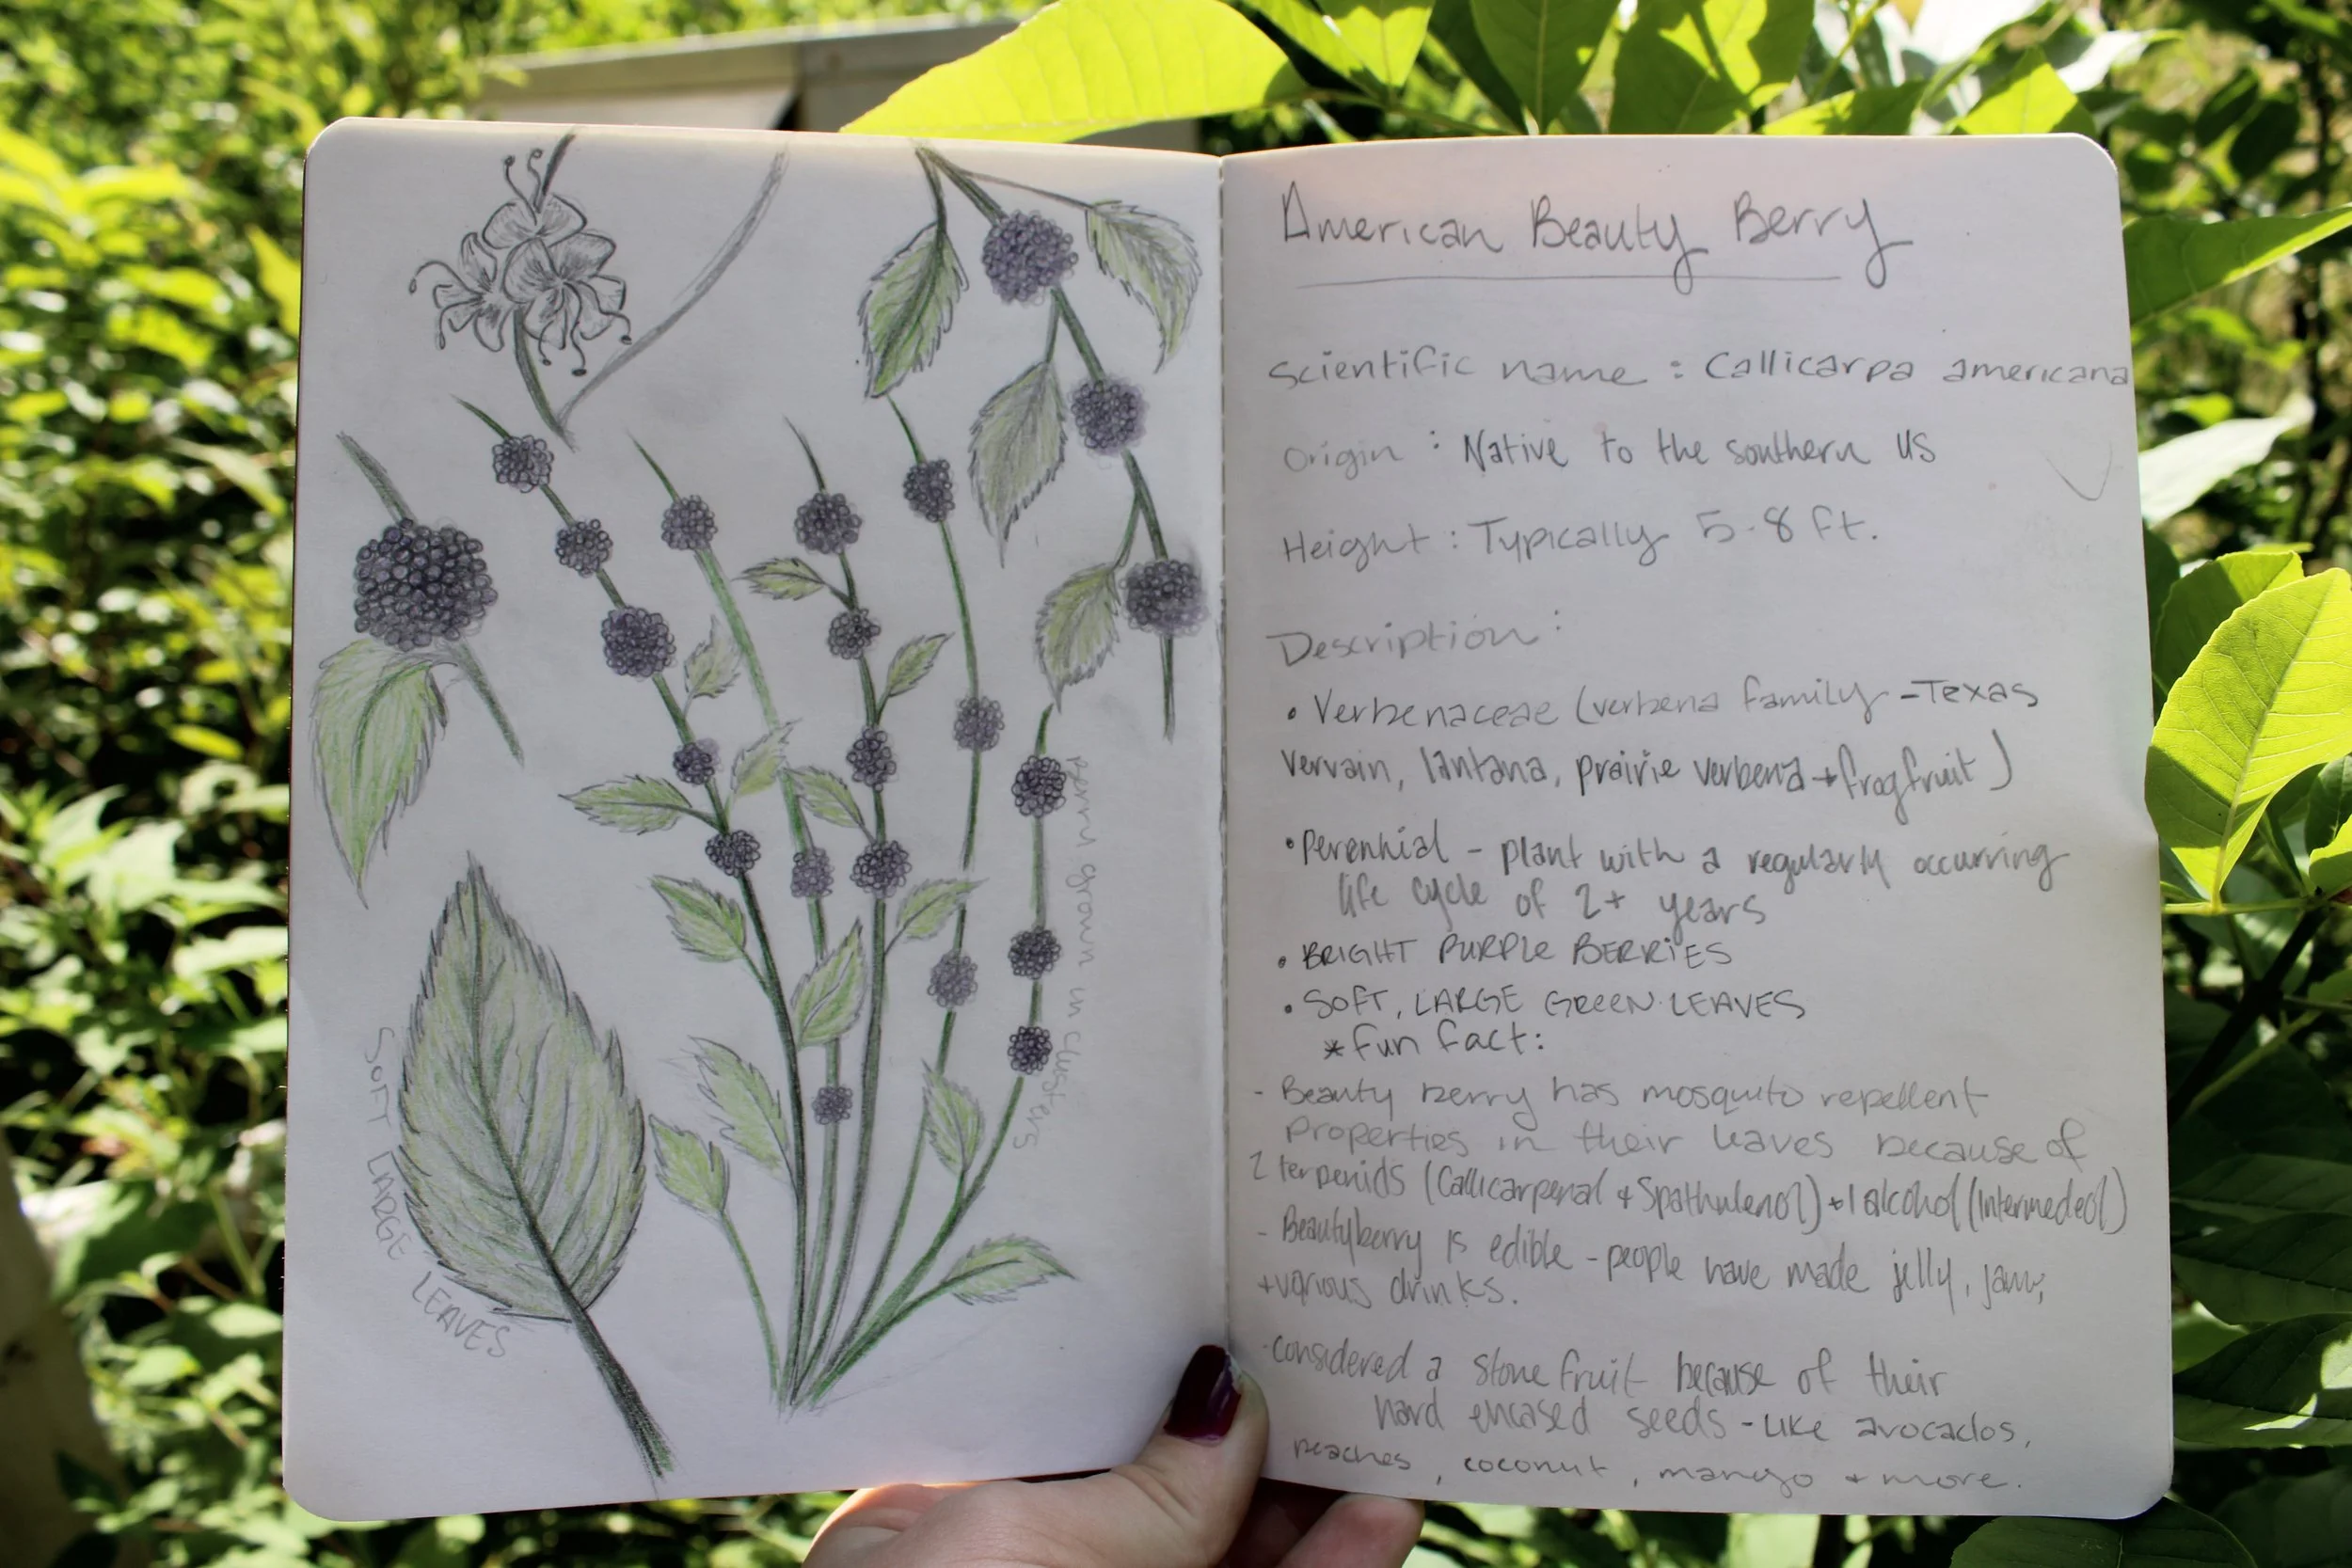 SOFT LARGE LEAVES
Berry grown in clusters
American Beauty Berry
Scientific name : Callicarpa americana
Origin : Native to the southern US
Height : Typically 5-8 ft.
Description :
• Verbenaceae (verbena family - Texas
vervain, lantana, prairie verbena + frogfruit)
• Perennial - plant with a regularly occurring
life cycle of 2+ years
• BRIGHT PURPLE BERRIES
• SOFT, LARGE GREEN LEAVES
* Fun fact:
- Beauty berry has mosquito repellent
properties in their leaves because of
2 terpenids (Callicarpenal + Spathulenol) + 1 alcohol (Intermedeol)
- Beautyberry is edible - people have made jelly, jam,
+ various drinks.
- considered a stone fruit because of their
hard encased seeds - like avocados,
peaches, coconut, mango + more.